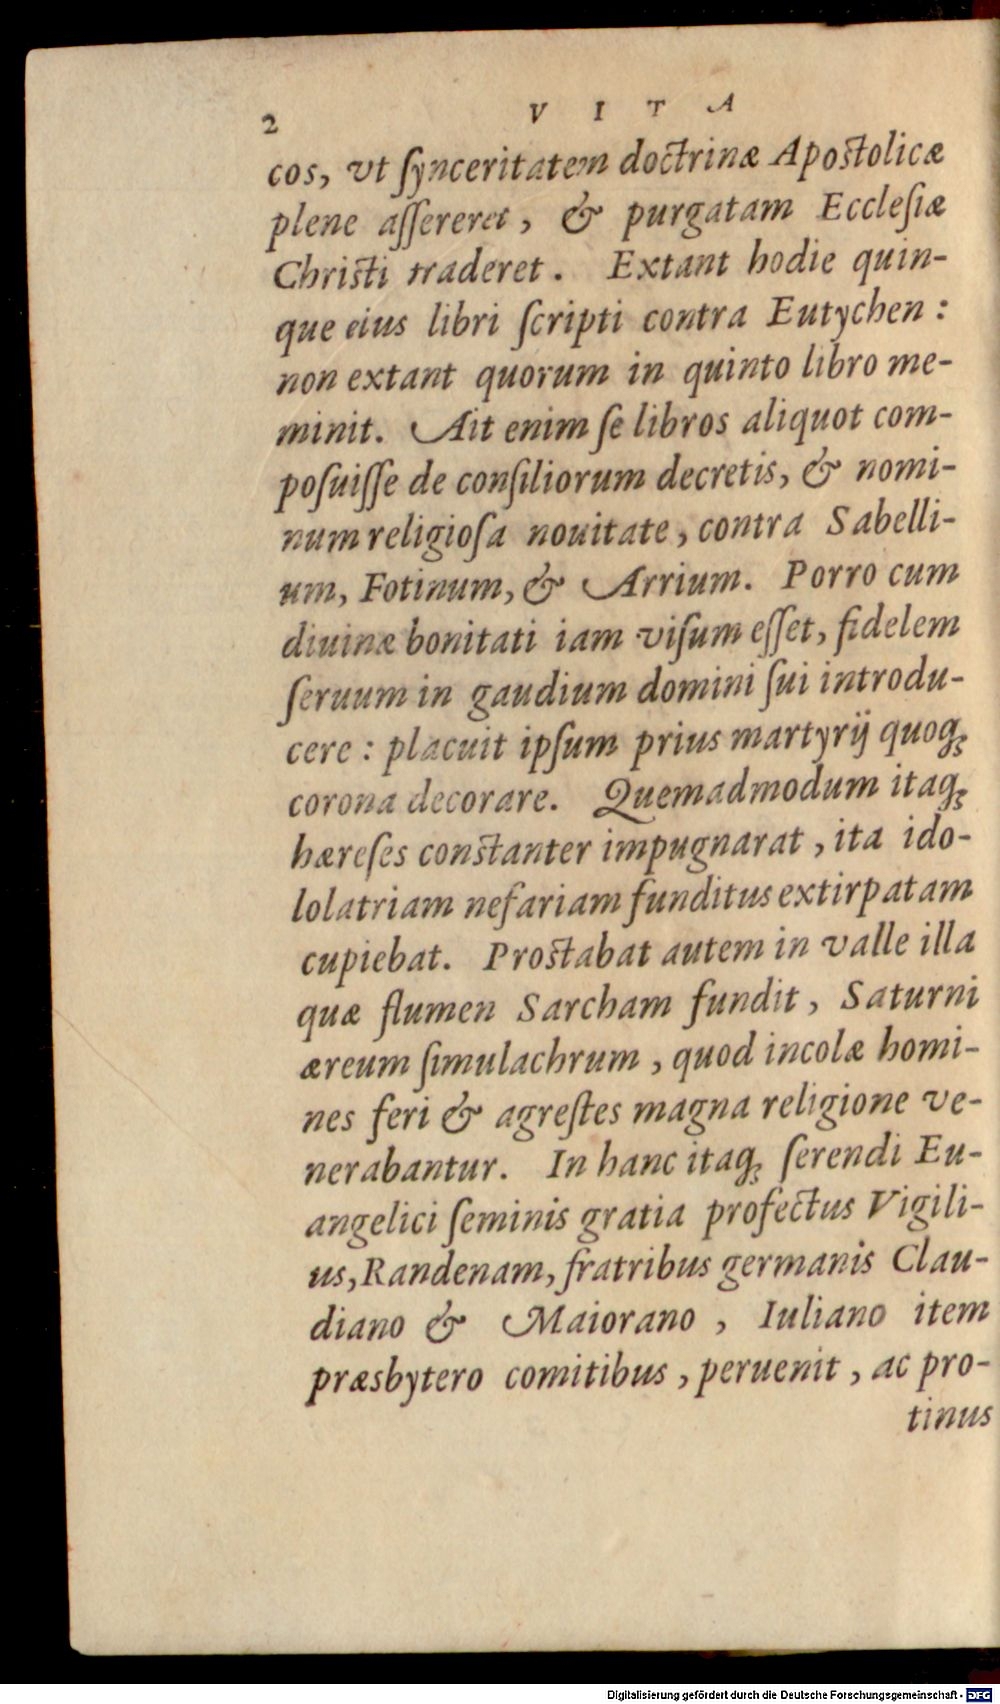 2 VITA
cos, vt ſynceritatem doctrinæ Apostolicæ
plene aſſereret, & purgatam Eccleſiæ
Christi traderet. Extant hodie quin-
que eius libri ſcripti contra Eutychen:
non extant quorum in quinto libro me-
minit. Ait enim ſe libros aliquot com-
poſuiſſe de conſiliorum decretis, & nomi-
num religioſa nouitate, contra Sabelli-
um, Fotinum, & Arrium. Porro cum
diuinæ bonitati iam viſum eſſet, fidelem
ſeruum in gaudium domini ſui introdu-
cere: placuit ipſum prius martyrij quoq;
corona decorare. Quemadmodum itaq;
hæreſes constanter impugnarat, ita ido-
lolatriam nefariam funditus extirpatam
cupiebat. Prostabat autem in valle illa
quæ flumen Sarcham fundit, Saturni
æreum ſimulachrum, quod incolæ homi-
nes feri & agreſtes magna religione ve-
nerabantur. In hanc itaq; ſerendi Eu-
angelici ſeminis gratia profectus Vigili-
us, Randenam, fratribus germanis Clau-
diano & Maiorano, Iuliano item
præsbytero comitibus, peruenit, ac pro-
tinus
Digitalisierung gefördert durch die Deutsche Forschungsgemeinschaft - DFG